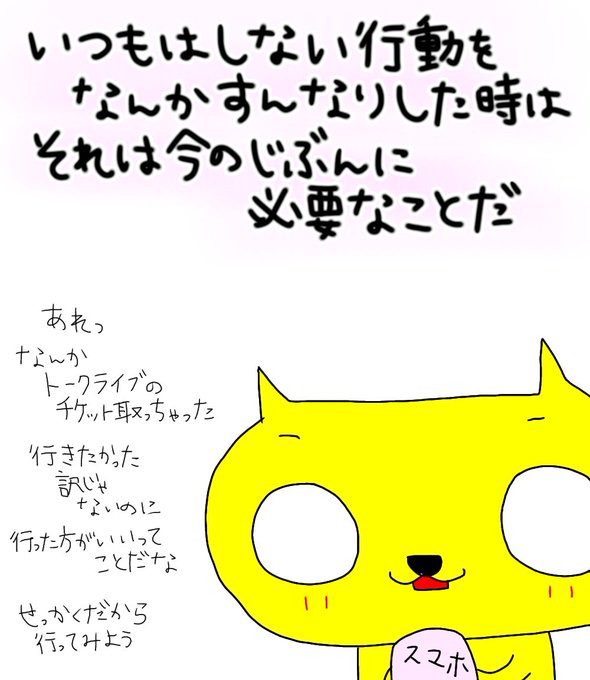 いつもはしない行動を
なんかすんなりした時は
それは今のじぶんに
必要なことだ
あれっ
なんか
トークライブの
チケット取っちゃった
行きたかった
訳じゃ
ないのに
行った方がいいって
ことだな
せっかくだから
行ってみよう
スマホ